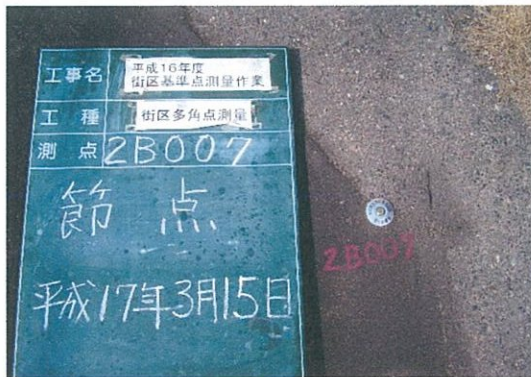 工事名
平成16年度
街区基準点測量作業
工種
街区多角点測量
測点 2B007
節点
平成17年3月15日
2B007